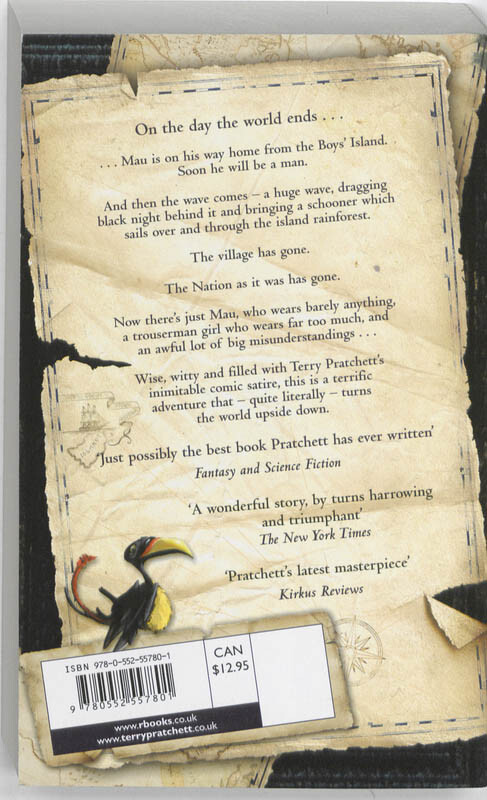 On the day the world ends . . .
. . . Mau is on his way home from the Boys' Island.
Soon he will be a man.
And then the wave comes – a huge wave, dragging
black night behind it and bringing a schooner which
sails over and through the island rainforest.
The village has gone.
The Nation as it was has gone.
Now there's just Mau, who wears barely anything,
a trouserman girl who wears far too much, and
an awful lot of big misunderstandings . . .
Wise, witty and filled with Terry Pratchett's
inimitable comic satire, this is a terrific
adventure that – quite literally – turns
the world upside down.
'Just possibly the best book Pratchett has ever written'
Fantasy and Science Fiction
'A wonderful story, by turns harrowing
and triumphant'
The New York Times
'Pratchett's latest masterpiece'
Kirkus Reviews
ISBN 978-0-552-55780-1
9 780552 557801
CAN
$12.95
www.rbooks.co.uk
www.terrypratchett.co.uk